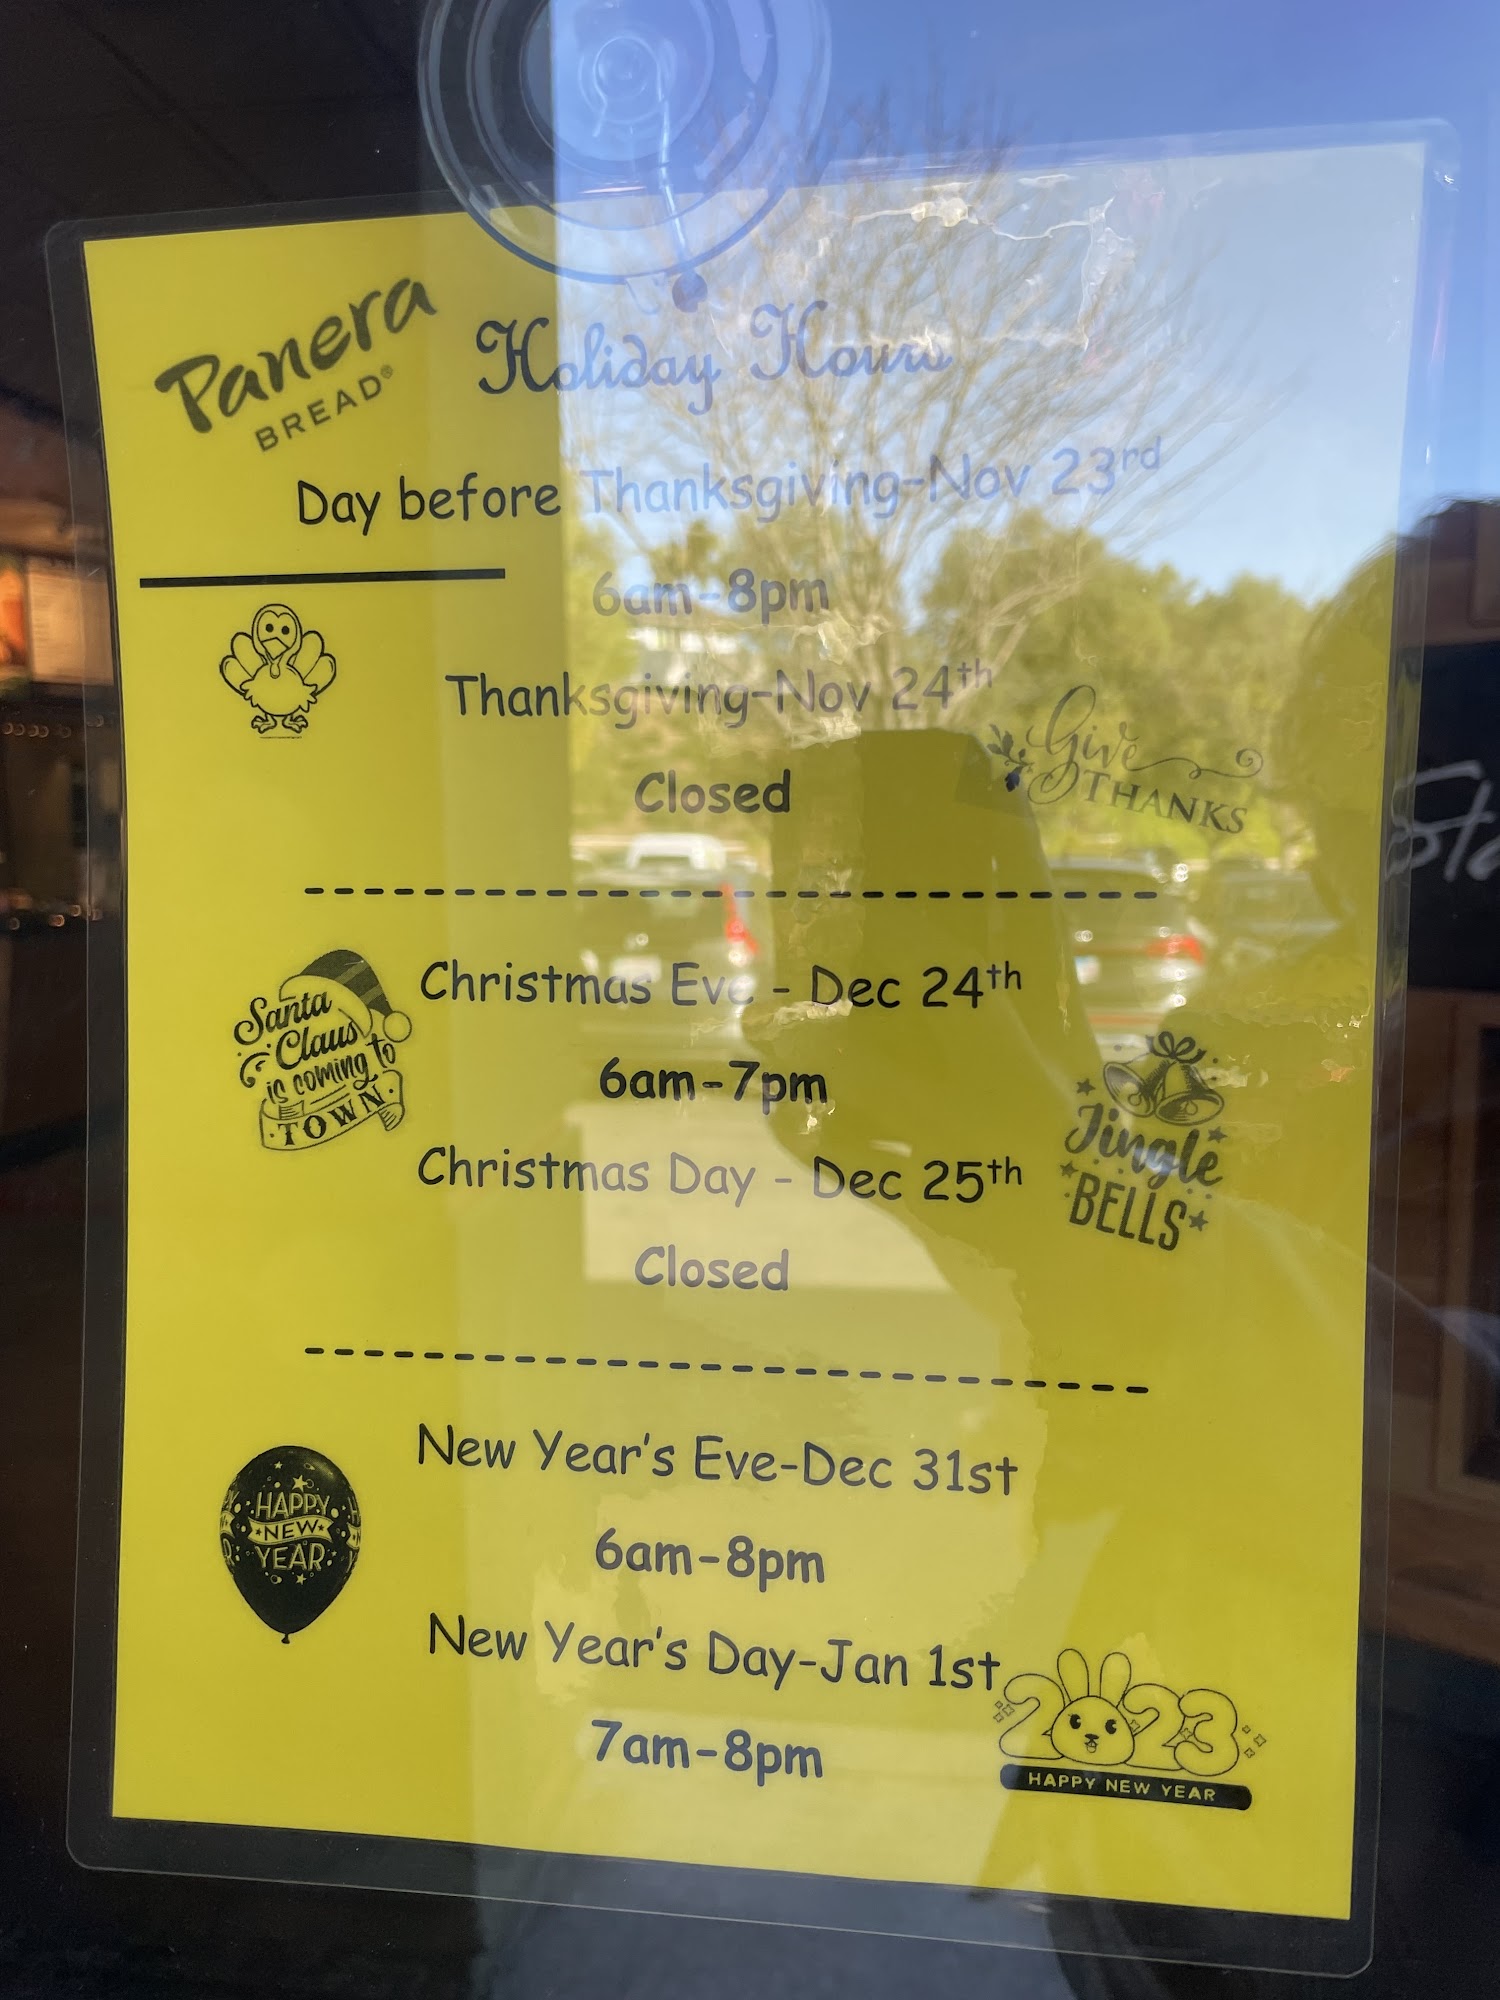 Panera
BREAD®
Holiday Hours
Day before Thanksgiving-Nov 23rd
6am-8pm
Thanksgiving-Nov 24th
Closed
Give
THANKS
Christmas Eve - Dec 24th
6am-7pm
Santa
Claus
is coming to
TOWN
Christmas Day - Dec 25th
Closed
Jingle
BELLS
New Year's Eve-Dec 31st
6am-8pm
HAPPY
NEW
YEAR
New Year's Day-Jan 1st
7am-8pm
2023
HAPPY NEW YEAR